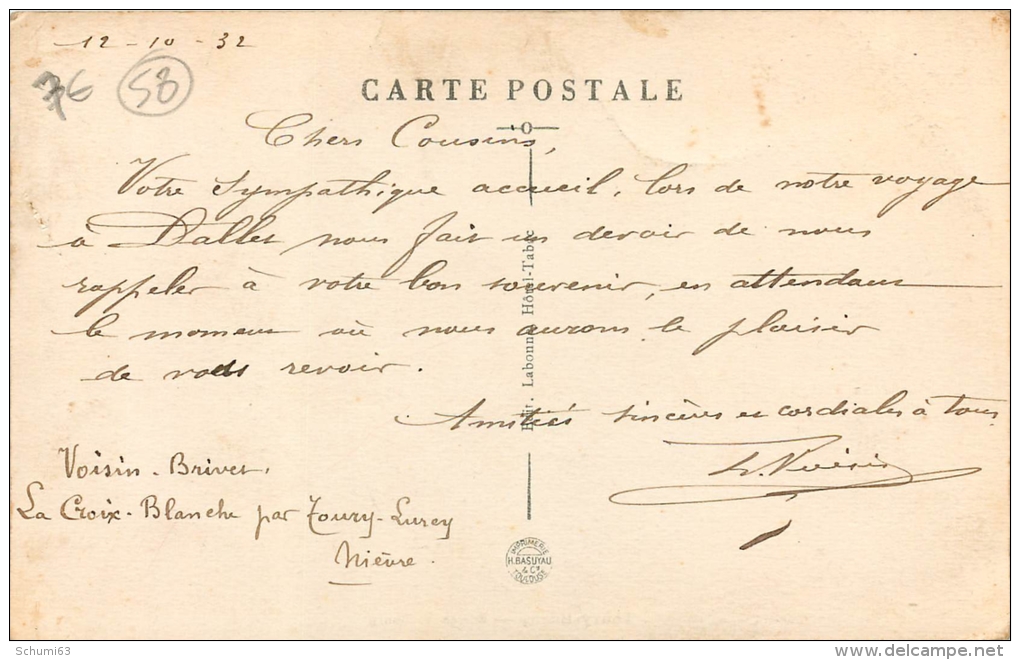 12-10-32
58
CARTE POSTALE
Chers Cousins,
Votre sympathique accueil, lors de notre voyage
à Dallet nous fait un devoir de nous
rappeler à votre bon souvenir, en attendant
le moment où nous aurons le plaisir
de vous revoir.
Amitiés sincères et cordiales à tous
Voisin
Voisin-Brivet,
La Croix-Blanche par Toury-Lurcy
Nièvre.
Edit. Labonne, Hôtel-Tabac
IMPRIMERIE
H. BASUYAU
& Cie
TOULOUSE
Schumi63
delcampe.net